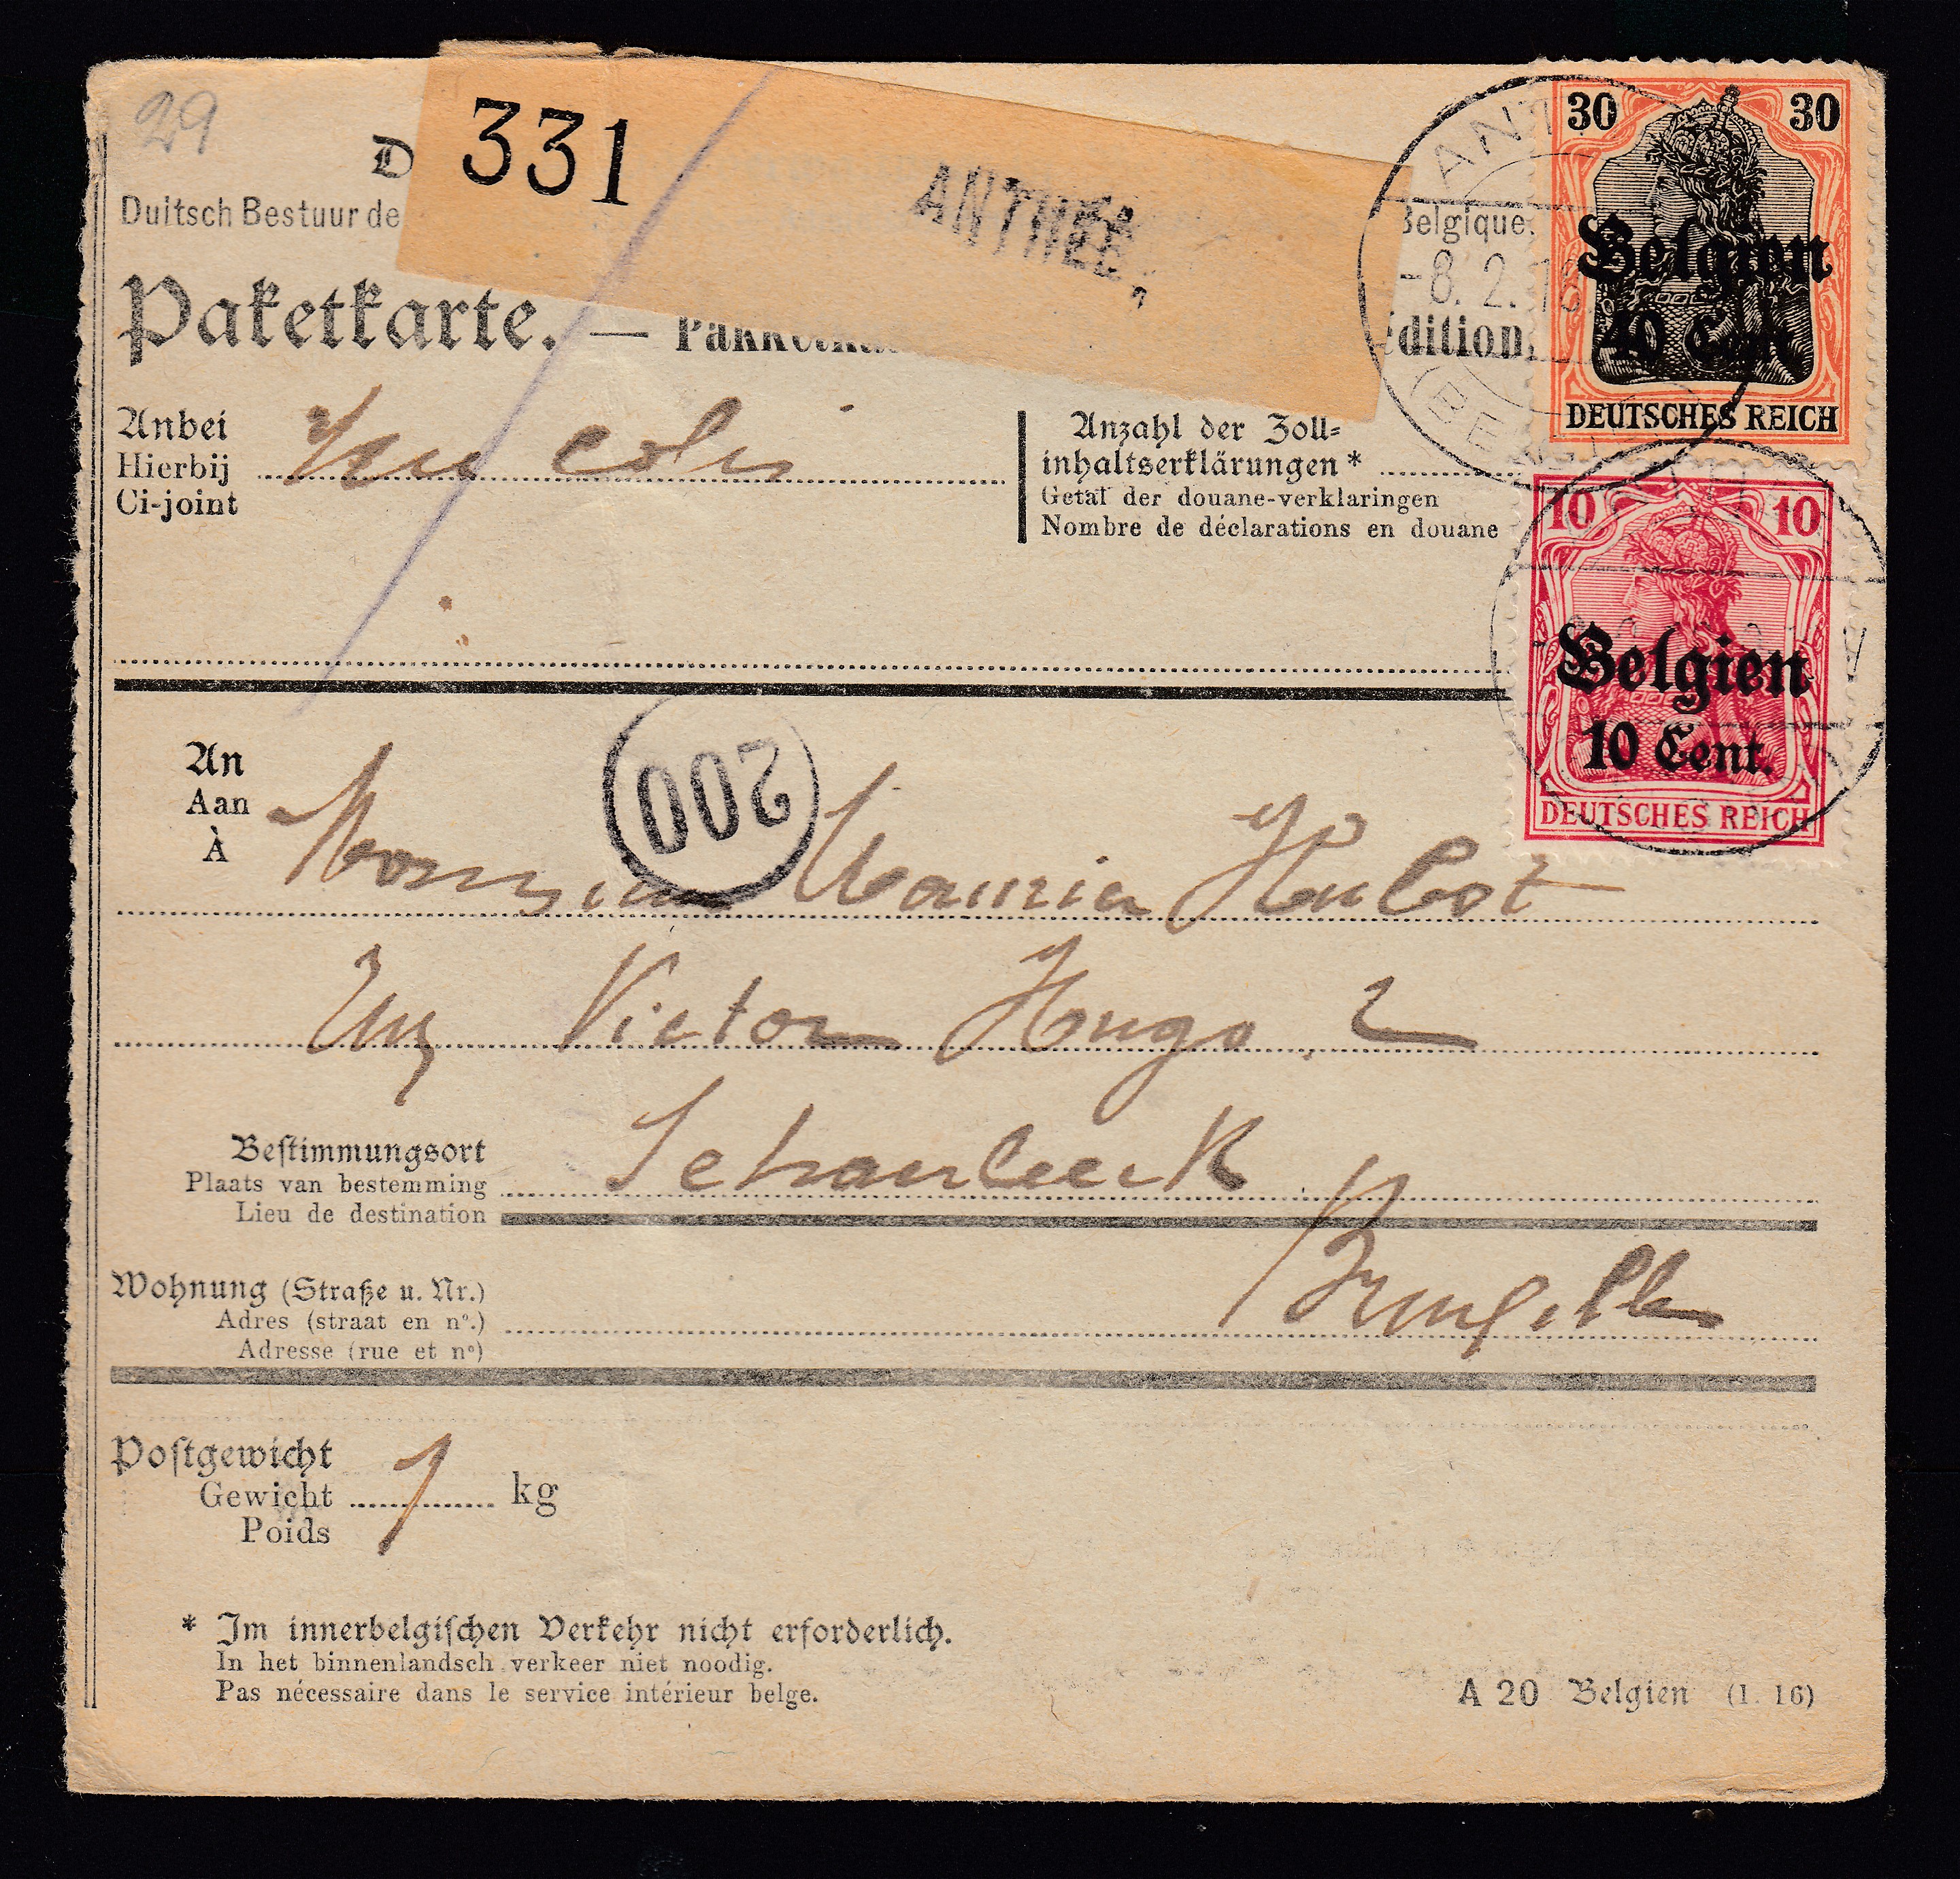 29
331
ANTHÉE,
Duitsch Bestuur de
Belgique
-8. 2. 18
Paketkarte. —
dition
30 30
Belgien
40 Cent
DEUTSCHES REICH
Anbei
Hierbij
Ci-joint
Un colis
Anzahl der Zoll-
inhaltserklärungen *
Getal der douane-verklaringen
Nombre de déclarations en douane
10 10
Belgien
10 Cent.
DEUTSCHES REICH
200
An
Aan
À
Monsieur Hubot
Victor Hugo 2
Bestimmungsort
Plaats van bestemming
Lieu de destination
Schaerbeek
Bruxelles
Wohnung (Straße u. Nr.)
Adres (straat en n°.)
Adresse (rue et n°)
Postgewicht
Gewicht 1 kg
Poids
* Im innerbelgischen Verkehr nicht erforderlich.
In het binnenlandsch verkeer niet noodig.
Pas nécessaire dans le service intérieur belge.
A 20 Belgien (1. 16)